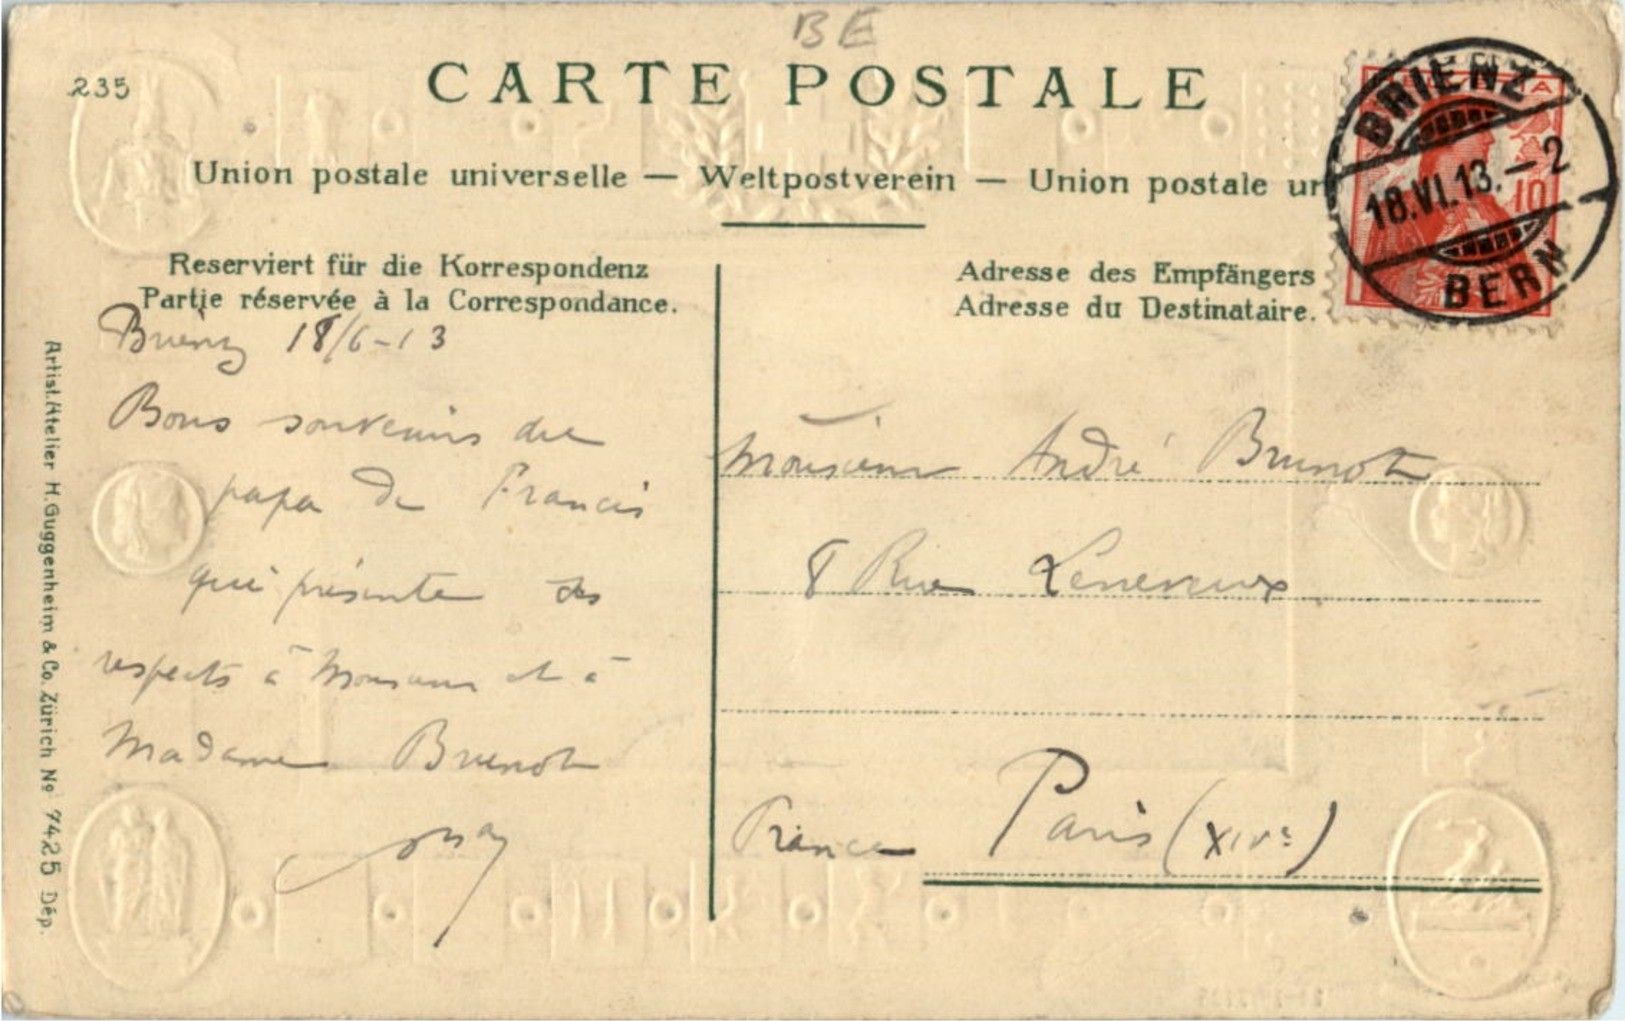 BE
235
CARTE POSTALE
Union postale universelle — Weltpostverein — Union postale un
BRIENZ
18.VI.13.–2
BERN
10
Reserviert für die Korrespondenz
Partie réservée à la Correspondance.
Adresse des Empfängers
Adresse du Destinataire.
Brienz 18/6-13
Bons souvenirs du
papa de Francis
qui présente ses
respects à Monsieur et à
Madame Brunot
Monsieur André Brunot
8 Rue Leneveux
Paris (XIVe)
France
Artist. Atelier H. Guggenheim & Co. Zürich No 7425 Dép.